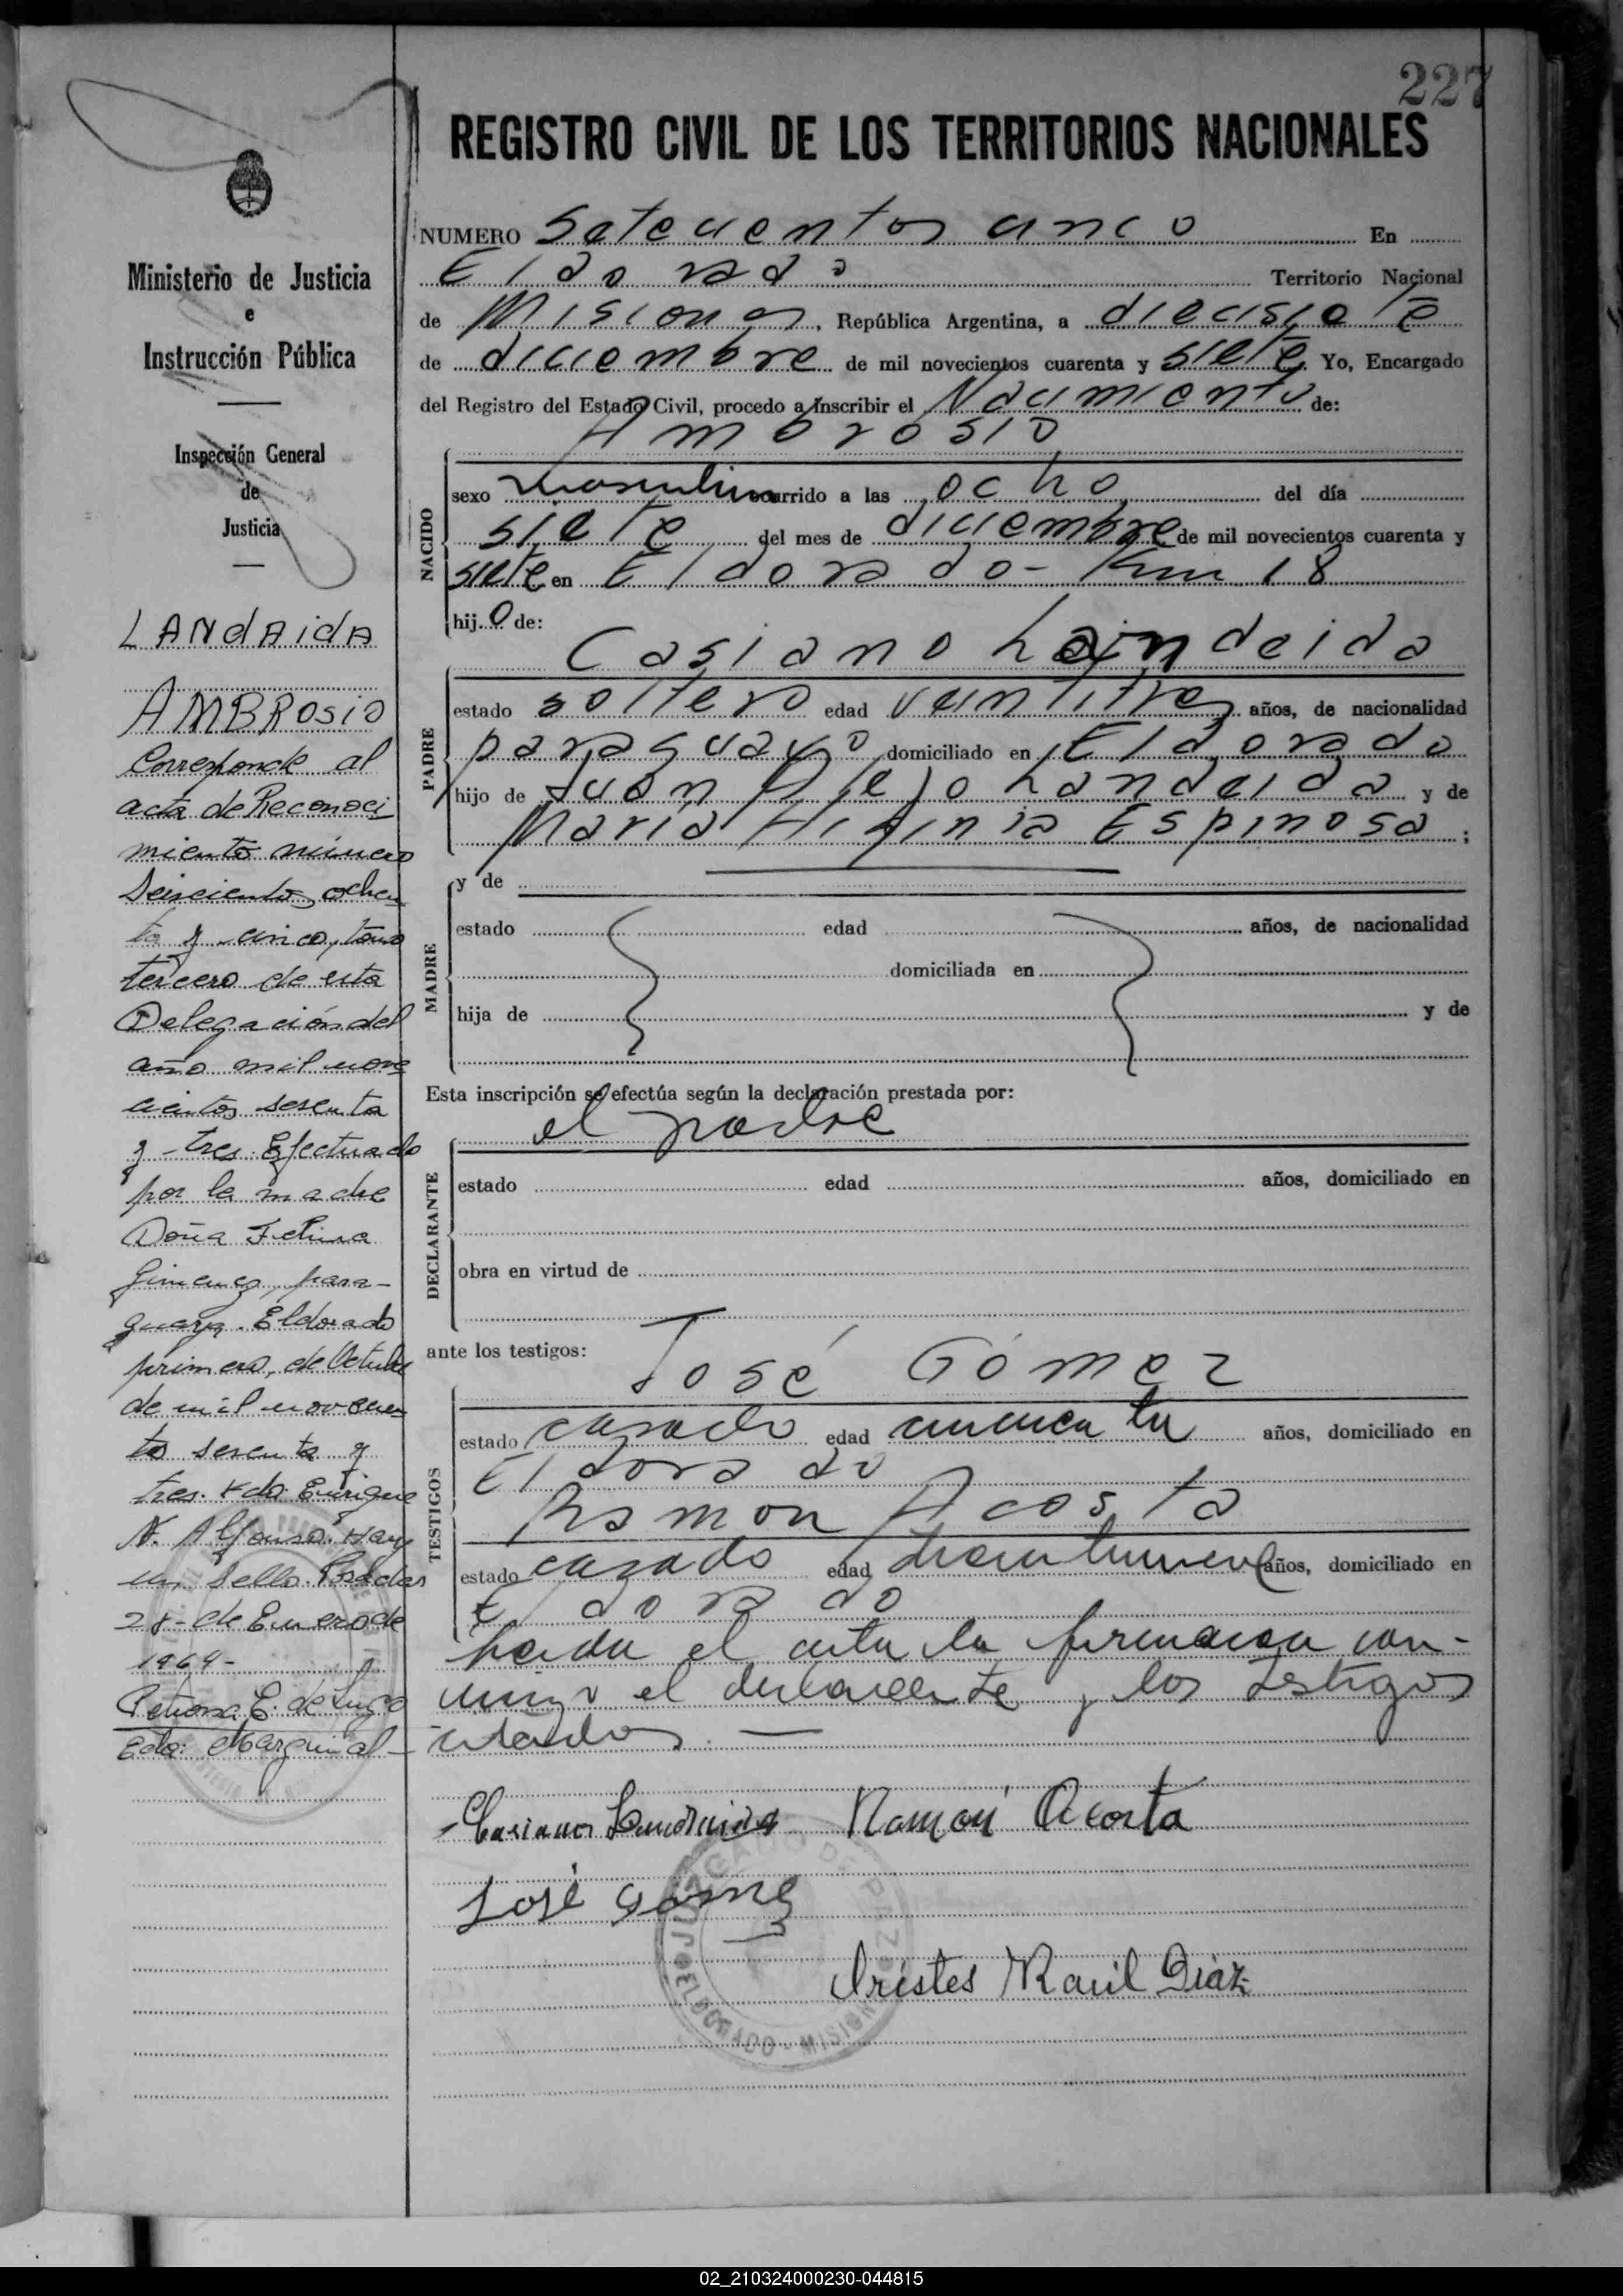 227
REGISTRO CIVIL DE LOS TERRITORIOS NACIONALES
Ministerio de Justicia
e
Instrucción Pública
Inspección General
de
Justicia
LANDAIDA
AMBROSIO
Corresponde al
acta de Reconoci
miento número
seiscientos ochen
ta y cinco, tomo
tercero de esta
Delegación del
año mil nove
cientos sesenta
y tres. Efectuado
por la madre
Doña Felina
Gimenez, para-
guaya. Eldorado
primero, de Octubre
de mil novecien
tos sesenta y
tres. Fdo: Enrique
N. Alfonso. Hay
un Sello. Posadas
28- de Enero de
1964-
Petrona E. de Lugo
Eda: Marginal-
NUMERO Setecientos cinco En
Eldorado Territorio Nacional
de Misiones, República Argentina, a diecisiete
de diciembre de mil novecientos cuarenta y siete. Yo, Encargado
del Registro del Estado Civil, procedo a inscribir el Nacimiento de:
Ambrosio
NACIDO
sexo masculino ocurrido a las ocho del día
siete del mes de diciembre de mil novecientos cuarenta y
siete en Eldorado - Km 18
hijo de:
Casiano Landaida
PADRE
estado soltero edad veintitres años, de nacionalidad
paraguayo domiciliado en Eldorado
hijo de Juan Alejo Landaida y de
Maria Higinia Espinosa ;
y de
MADRE
estado edad años, de nacionalidad
domiciliada en
hija de y de
Esta inscripción se efectúa según la declaración prestada por:
el padre
DECLARANTE
estado edad años, domiciliado en
obra en virtud de
ante los testigos:
José Gómez
TESTIGOS
estado casado edad cincuenta años, domiciliado en
Eldorado
Ramon Acosta
estado casado edad treintinueve años, domiciliado en
Eldorado
Leida el acta la firmaron con-
migo el declarante y los testigos
citados. —
Casiano Landaida Ramón Acosta
José Gómez
Orestes Raúl Diaz
JUZGADO DE PAZ
ELDORADO - MISIONES
02_210324000230-044815